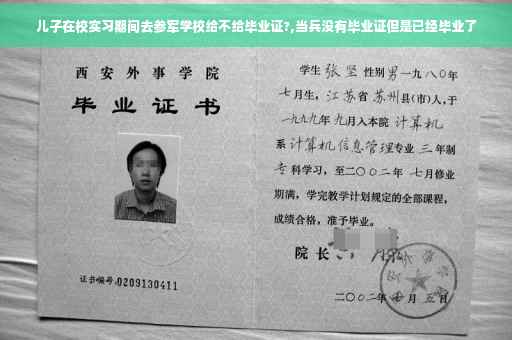 儿子在校实习期间去参军学校给不给毕业证?,当兵没有毕业证但是已经毕业了
西安外事学院
毕业证书
证书编号:0209130411
学生 张坚 性别 男 一九八〇年
七月生，江苏省 苏州县(市)人,于
一九九九年九月入本院 计算机
系 计算机信息管理专业 三年制
专科学习，至二〇〇二年 七月修业
期满，学完教学计划规定的全部课程，
成绩合格，准予毕业。
院长
二〇〇二年 七月 五日